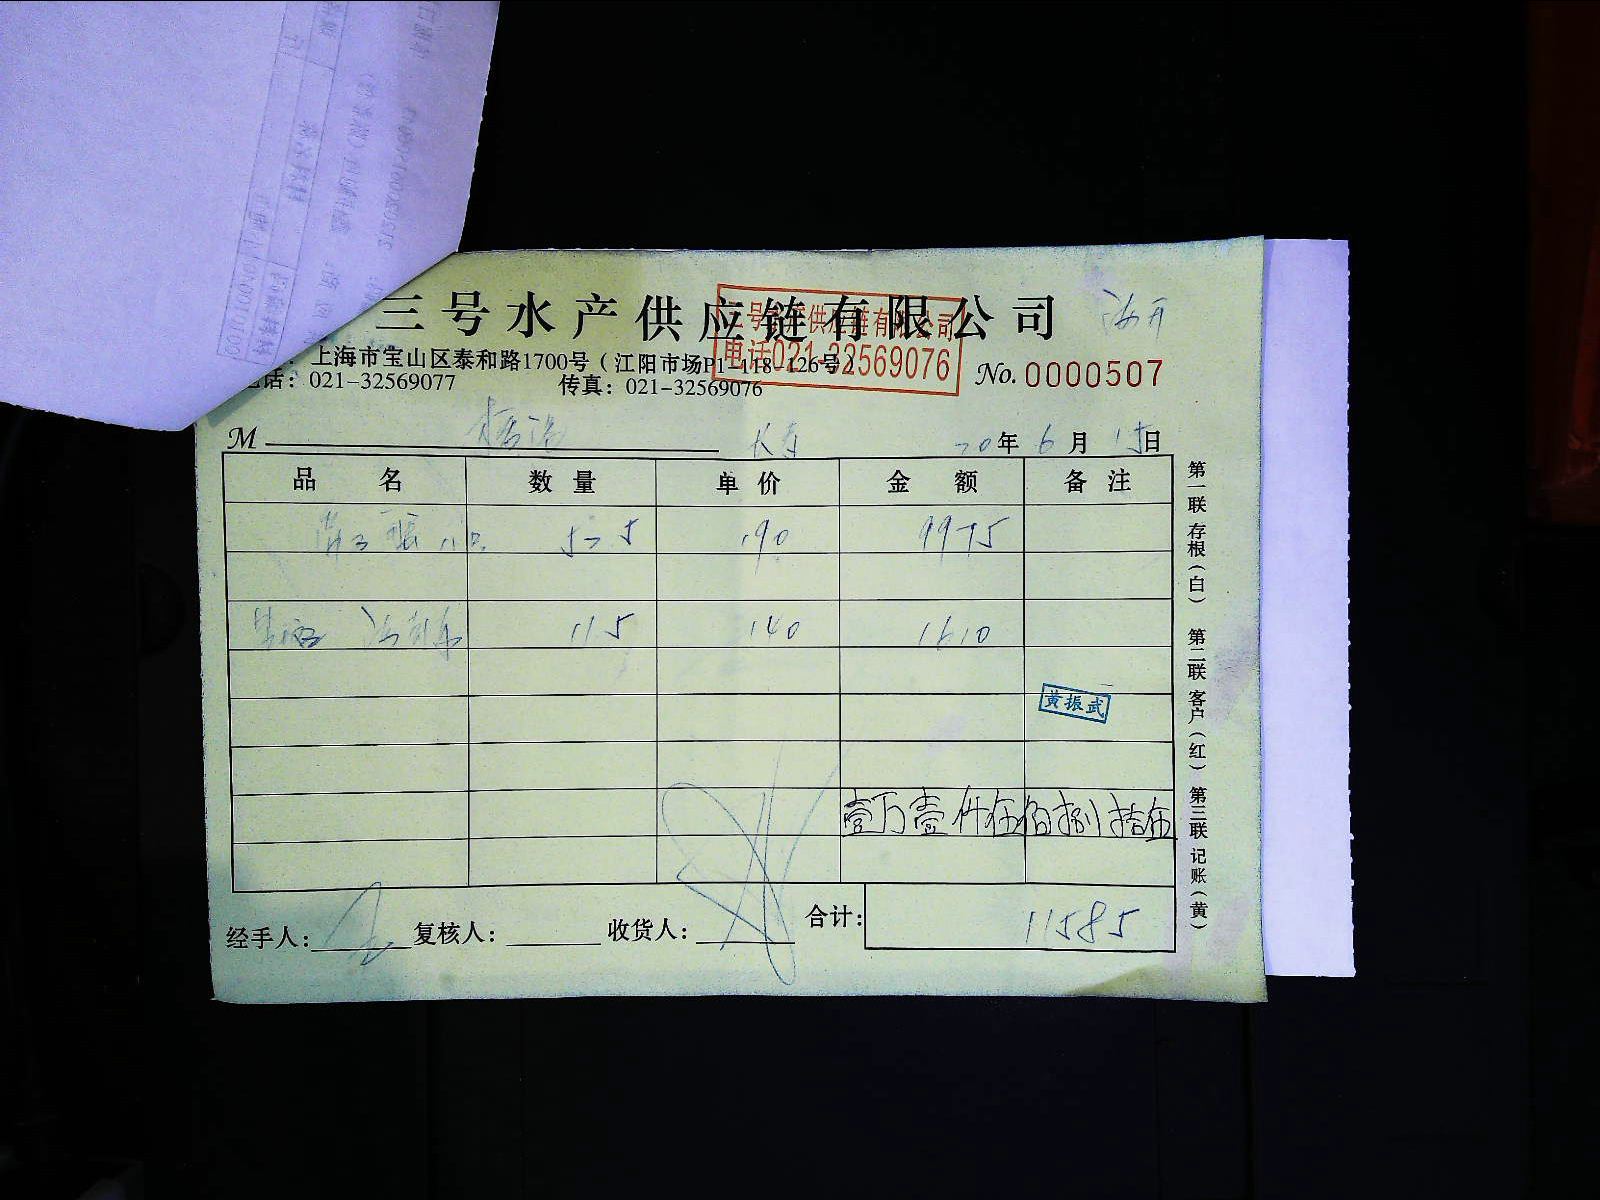 三号水产供应链有限公司
三号水产供应链有限公司
电话021-32569076
上海市宝山区泰和路1700号（江阳市场P1-118-126号）
No.0000507
话：021-32569077 传真：021-32569076
M 20年6月15日
品名 数量 单价 金额 备注
52.5 190 9975
11.5 140 1610
黄振武
壹万壹仟伍佰捌拾伍
经手人： 复核人： 收货人： 合计： 11585
第一联 存根（白） 第二联 客户（红） 第三联 记账（黄）